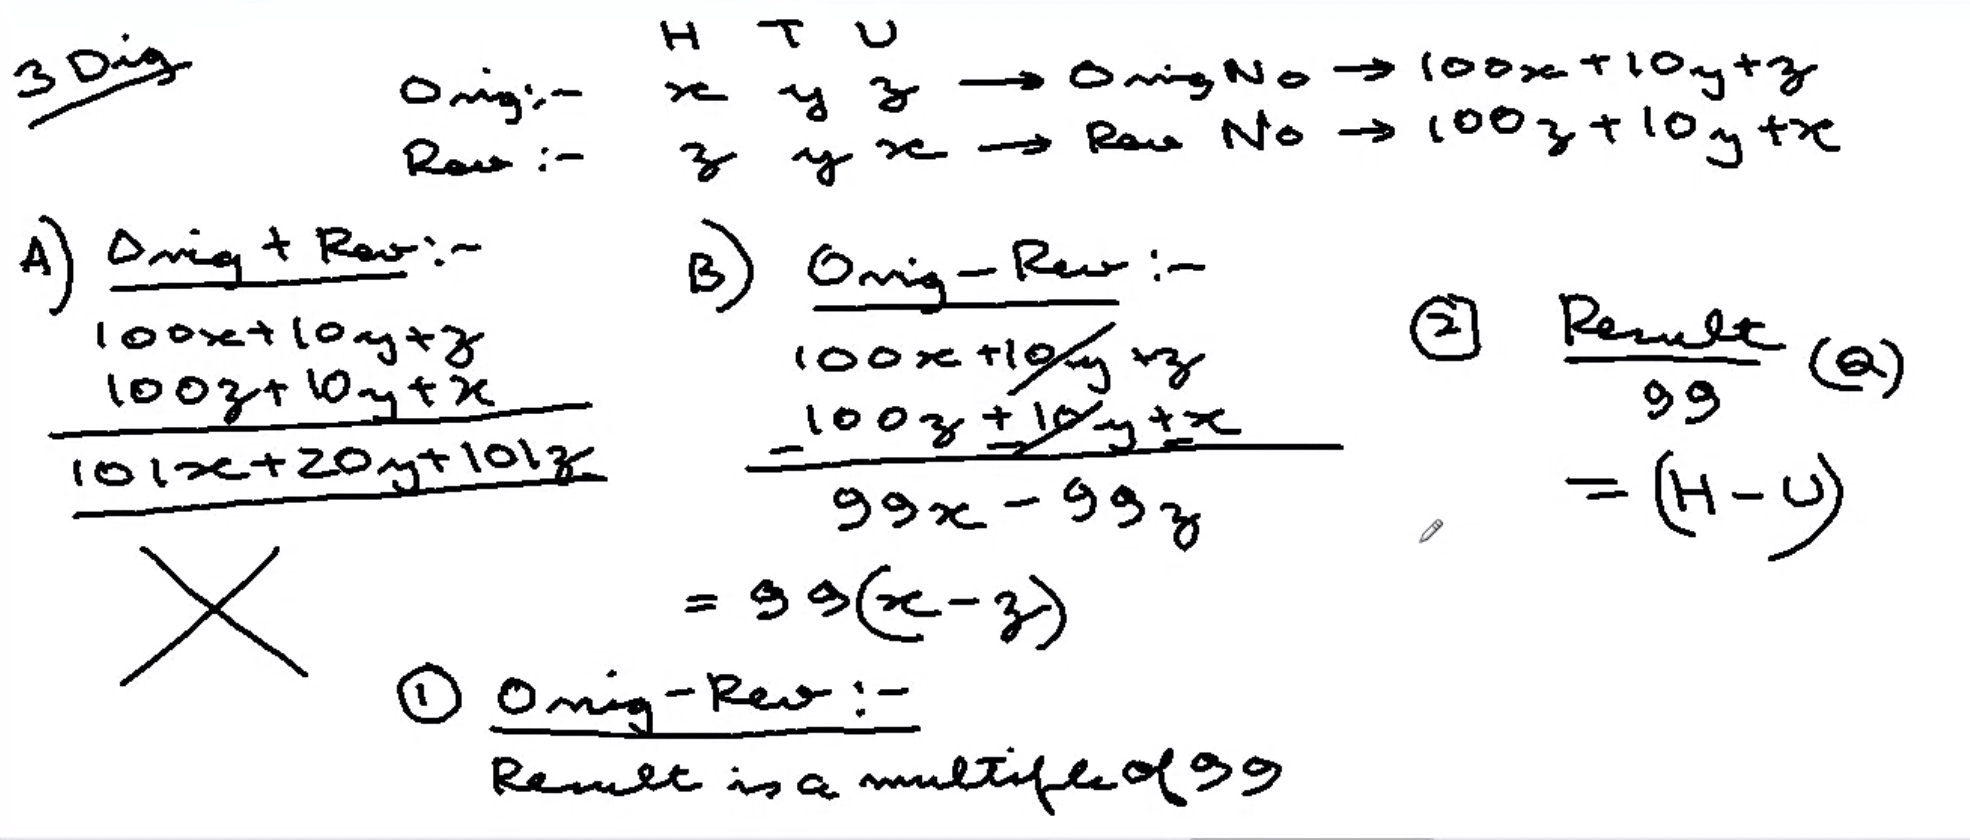 3 Dig
H T U
Orig:- x y z → Orig No → 100x+10y+z
Rev :- z y x → Rev No → 100z+10y+x
A) Orig + Rev:-
100x+10y+z
100z+10y+x
101x+20y+101z
B) Orig - Rev :-
100x+10y+z
100z+10y+x
- - -
99x - 99z
= 99(x-z)
① Orig-Rev :-
Result is a multiple of 99
② Result (Q)
99
= (H-U)